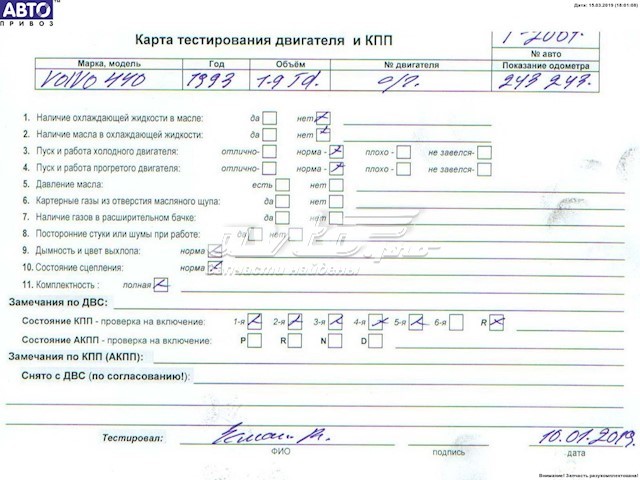 АВТО
ПРИВОЗ
Дата: 15.03.2019 (18:01:09)
Карта тестирования двигателя и КПП
Марка, модель Год Объём № двигателя № авто
Показание одометра
Volvo 440 1993 1.9 Td. 243 243.
1. Наличие охлаждающей жидкости в масле: да нет
2. Наличие масла в охлаждающей жидкости: да нет
3. Пуск и работа холодного двигателя: отлично- норма - плохо - не завелся-
4. Пуск и работа прогретого двигателя: отлично- норма - плохо - не завелся-
5. Давление масла: есть нет
6. Картерные газы из отверстия масляного щупа: да нет
7. Наличие газов в расширительном бачке: да нет
8. Посторонние стуки или шумы при работе: да нет
9. Дымность и цвет выхлопа: норма
10. Состояние сцепления: норма
11. Комплектность : полная
Замечания по ДВС:
Состояние КПП - проверка на включение: 1-я 2-я 3-я 4-я 5-я 6-я R
Состояние АКПП - проверка на включение: P R N D
Замечания по КПП (АКПП):
Снято с ДВС (по согласованию!):
Тестировал: 10.01.2019
ФИО подпись дата
Внимание! Запчасть разукомплектована!